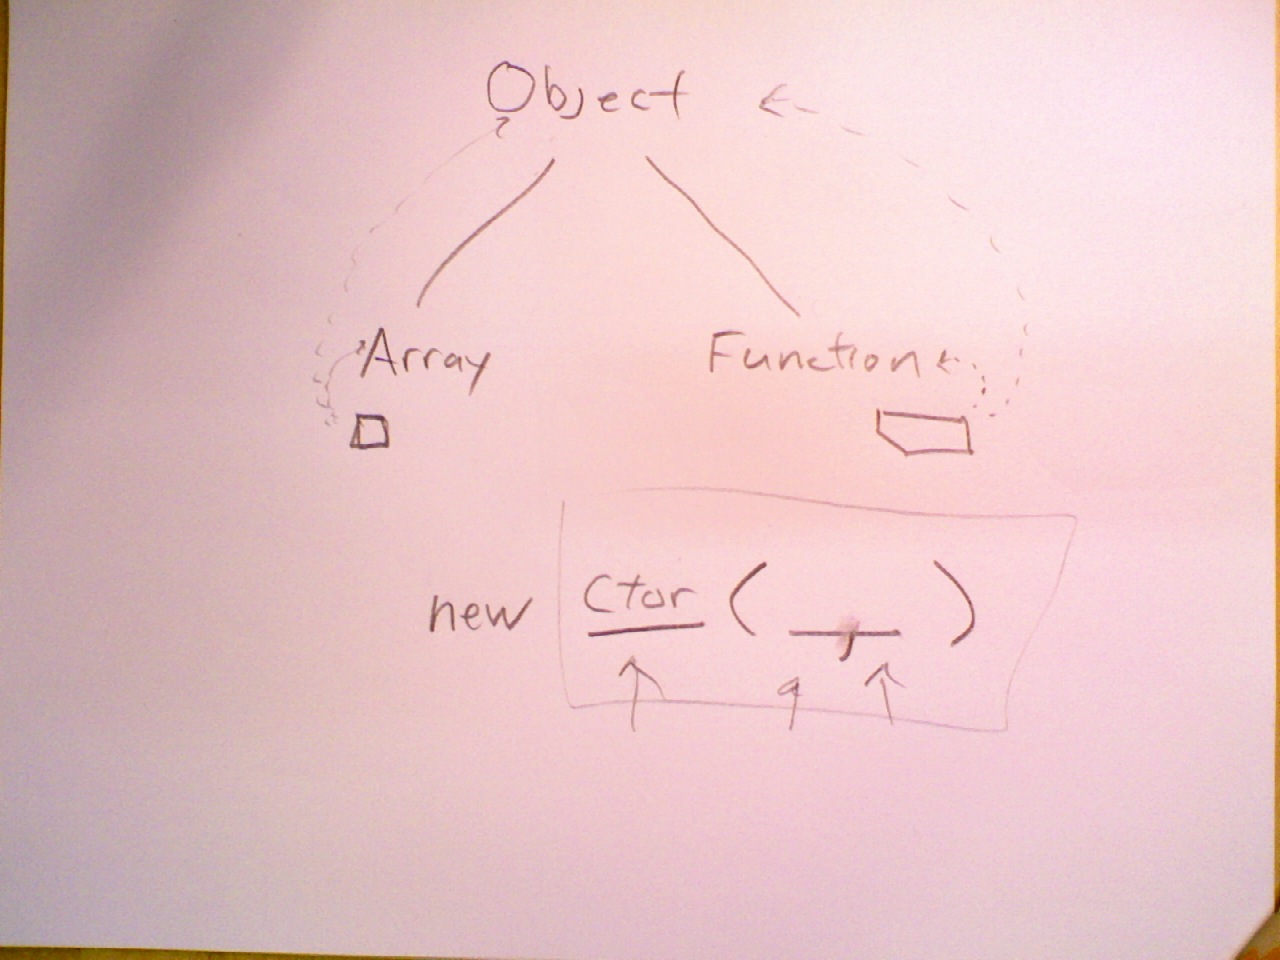 Object
Array Function
new Ctor ( , )